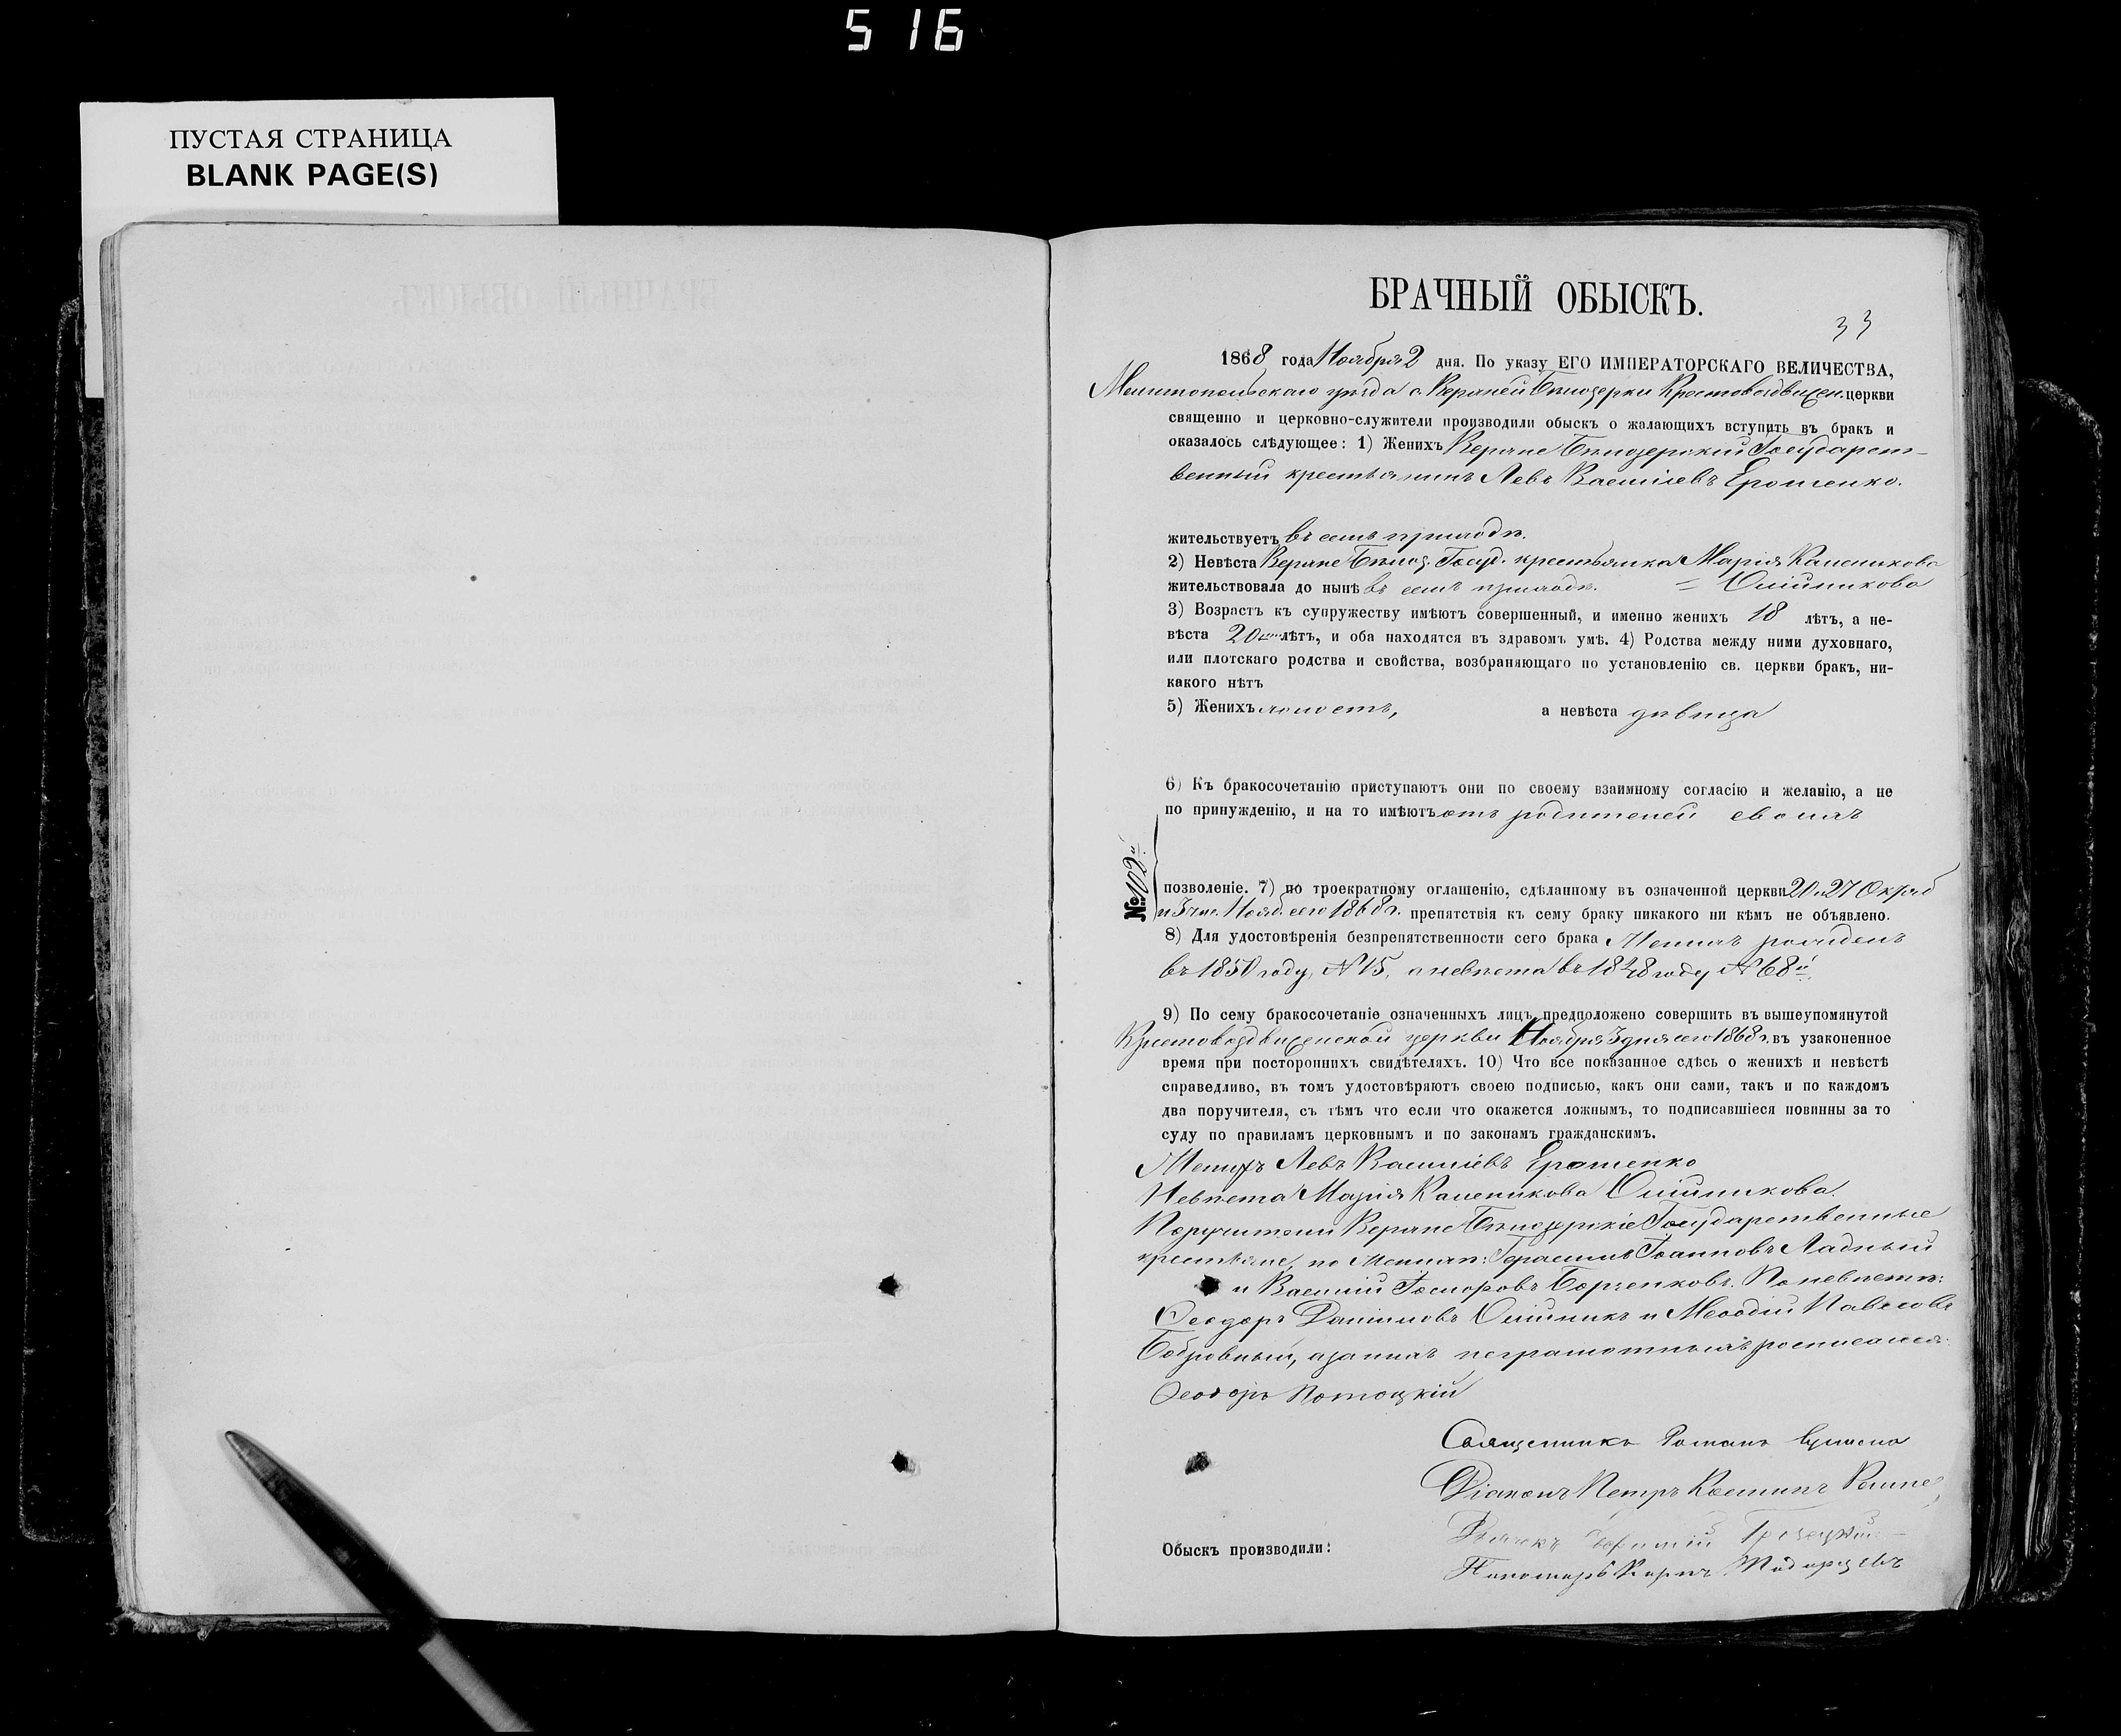 516
ПУСТАЯ СТРАНИЦА
BLANK PAGE(S)
БРАЧНЫЙ ОБЫСКЪ.
33
1868 года Ноября 2 дня. По указу ЕГО ИМПЕРАТОРСКАГО ВЕЛИЧЕСТВА,
Мелитопольскаго уѣзда с. Верхней Бѣлозерки Крестовоздвижен. церкви
священно и церковно-служители производили обыскъ о жалающихъ вступить въ бракъ и
оказалось слѣдующее: 1) Женихъ Верхне Бѣлозерскій Государст-
венный крестьянинъ Левъ Василіевъ Ерошенко.
жительствуетъ въ семъ приходѣ.
2) Невѣста Верхне Бѣлоз. Госуд. крестьянка Марія Каленикова
жительствовала до нынѣ въ семъ приходѣ. = Олійникова
3) Возрастъ къ супружеству имѣютъ совершенный, и именно женихъ 18 лѣтъ, а не-
вѣста 20 лѣтъ, и оба находятся въ здравомъ умѣ. 4) Родства между ними духовнаго,
или плотскаго родства и свойства, возбраняющаго по установленію св. церкви бракъ, ни-
какого нѣтъ
5) Женихъ холостъ, а невѣста дѣвица
6) Къ бракосочетанію приступаютъ они по своему взаимному согласію и желанію, а не
по принужденію, и на то имѣютъ отъ родителей своихъ
№ 102й
позволеніе. 7) по троекратному оглашенію, сдѣланному въ означенной церкви 20 и 27 Октяб
и 3 чис. Нояб. сего 1868 г. препятствія къ сему браку никакого ни кѣмъ не объявлено.
8) Для удостовѣренія безпрепятственности сего брака Женихъ рожденъ
въ 1850 году, № 15, а невѣста въ 1848 году № 68й.
9) По сему бракосочетаніе означенныхъ лицъ предположено совершить въ вышеупомянутой
Крестовоздвиженской церкви Ноября 3 дня сего 1868 г. въ узаконенное
время при постороннихъ свидѣтеляхъ. 10) Что все показанное сдѣсь о женихѣ и невѣстѣ
справедливо, въ томъ удостовѣряютъ своею подписью, какъ они сами, такъ и по каждомъ
два поручителя, съ тѣмъ что если что окажется ложнымъ, то подписавшіеся повинны за то
суду по правиламъ церковнымъ и по законамъ гражданскимъ.
Женихъ Левъ Василіевъ Ерошенко
Невѣста Марія Каленикова Олійникова.
Поручители Верхне Бѣлозерскіе Государственные
крестьяне, по Женихѣ: Герасимъ Іоанновъ Ладный
и Василій Борченковъ. По невѣстѣ:
Ѳеодоръ Даніиловъ Олійникъ и Меѳодій Павловъ
Бобровный, а за нихъ неграмотныхъ росписался
Ѳеодоръ Потоцкій
Священникъ Романъ
Діаконъ Петръ Косминъ
Дьячекъ
Обыскъ производили:
Пономарь Карпъ